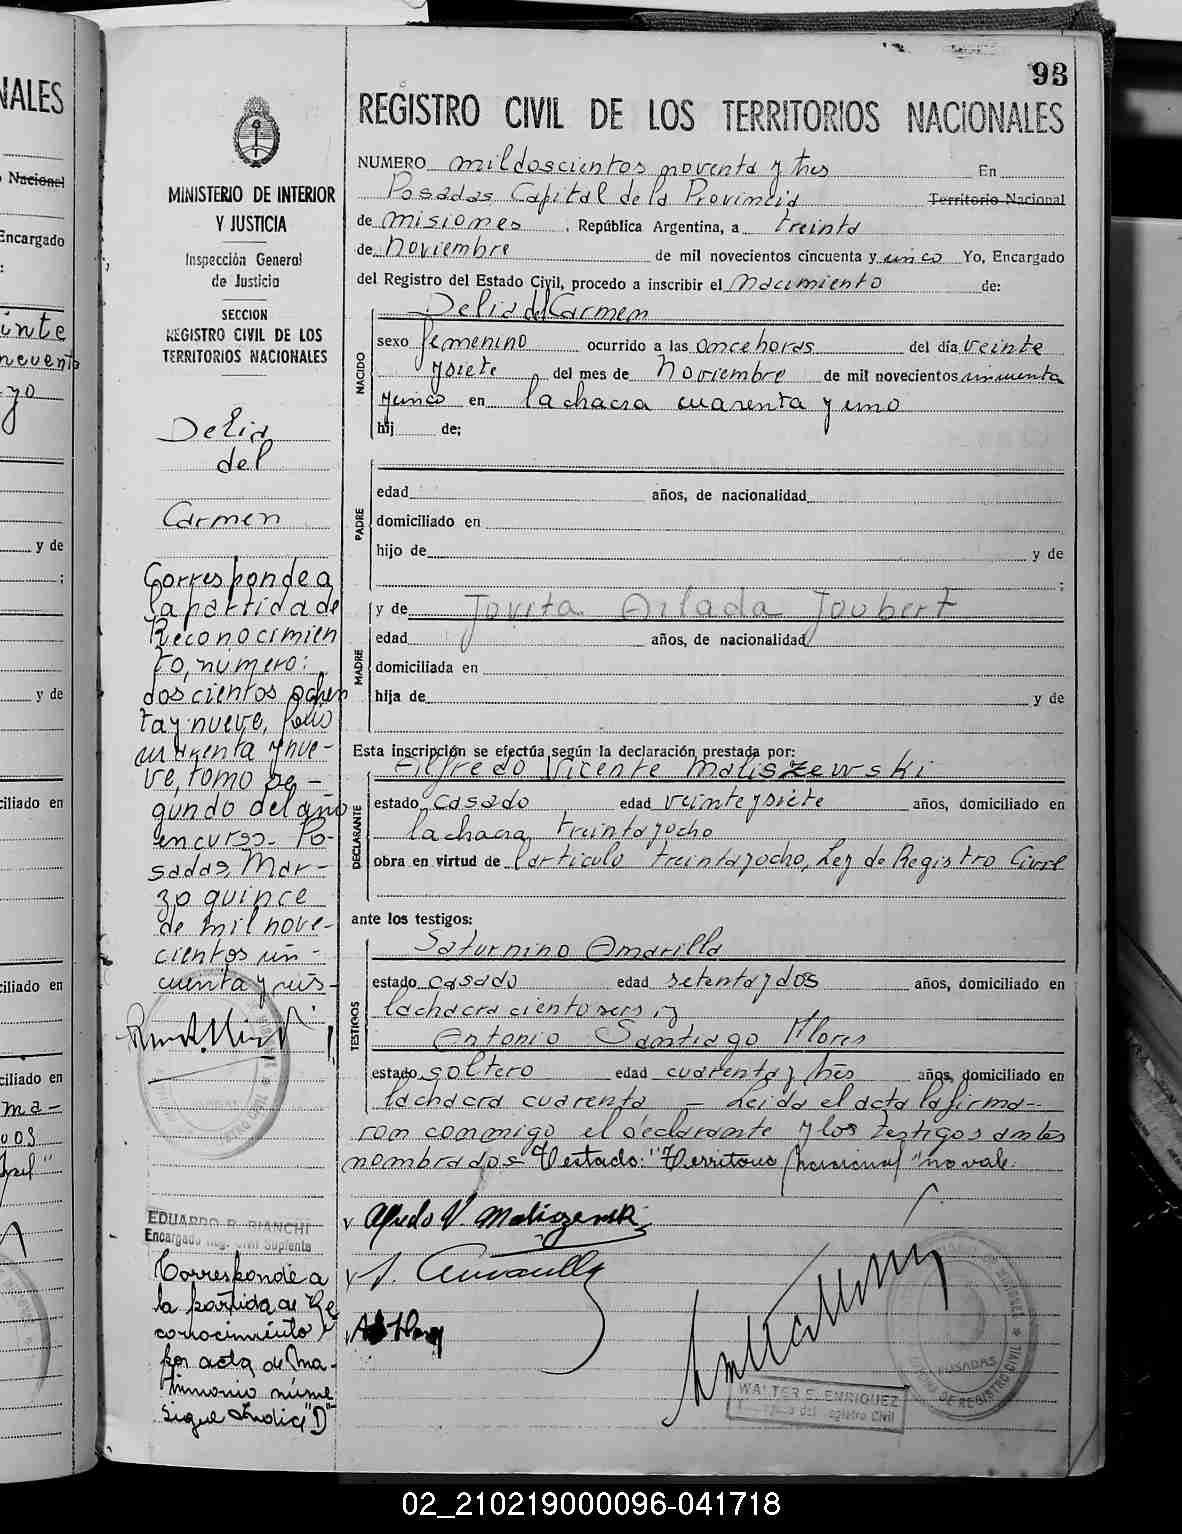 NALES
Nacional
Encargado
inte
y de
y de
ciliado en
ciliado en
ciliado en
ma-
93
MINISTERIO DE INTERIOR
Y JUSTICIA
Inspección General
de Justicia
SECCION
REGISTRO CIVIL DE LOS
TERRITORIOS NACIONALES
Delia
del
Carmen
Corresponde a
la partida de
Reconocimien
to, número:
doscientos ochen
ta y nueve, folio
cuarenta y nue-
ve, tomo se-
gundo del año
en curso. Po-
sadas, Mar-
zo quince
de mil nove-
cientos cin-
cuenta y seis-
EDUARDO R. BIANCHI
Encargado Reg. Civil Suplente
Corresponde a
la partida de Re
conocimiento
por acta de Ma-
trimonio núme
sigue Indice "D"
REGISTRO CIVIL DE LOS TERRITORIOS NACIONALES
NUMERO mil doscientos noventa y tres En
Posadas Capital de la Provincia Territorio Nacional
de Misiones, República Argentina, a treinta
de Noviembre de mil novecientos cincuenta y cinco Yo, Encargado
del Registro del Estado Civil, procedo a inscribir el Nacimiento de:
Delia del Carmen
NACIDO
sexo femenino ocurrido a las once horas del día veinte
y siete del mes de Noviembre de mil novecientos cincuenta
y cinco en la chacra cuarenta y uno
hij de;
PADRE
edad años, de nacionalidad
domiciliado en
hijo de y de
;
MADRE
y de Jovita Joubert
edad años, de nacionalidad
domiciliada en
hija de y de
Esta inscripción se efectúa según la declaración prestada por:
Alfredo Vicente Maliszewski
DECLARANTE
estado casado edad veinte y siete años, domiciliado en
la chacra treinta y ocho
obra en virtud de l'articulo treinta y ocho, Ley de Registro Civil
ante los testigos:
TESTIGOS
Saturnino Amarilla
estado casado edad setenta y dos años, domiciliado en
la chacra ciento seis, y
Antonio Santiago Flores
estado soltero edad cuarenta y tres años, domiciliado en
la chacra cuarenta - Leida el acta la firma-
ron conmigo el declarante y los testigos antes
nombrados Testado: "Territorio Nacional" no vale.
Alfredo V. Maliszewski
S. Amarilla
POSADAS
WALTER E. ENRIQUEZ
Encargado del Registro Civil
02_210219000096-041718